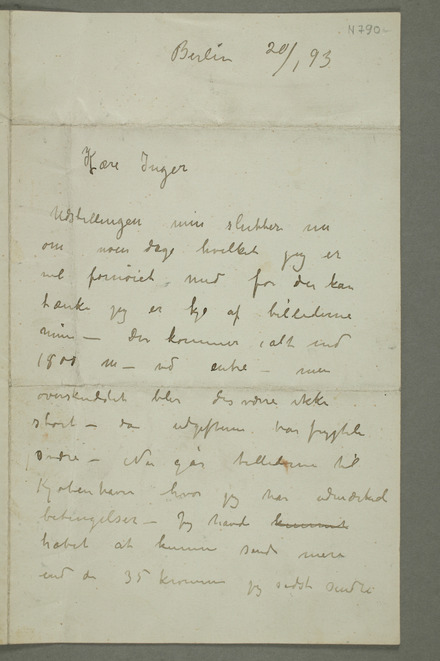 N 790
Berlin 20/1 93
Kære Inger
Udstillingen min slutter nu
om noen dage hvilket jeg er
vel fornøiet med for du kan
tænke jeg er kje af billederne
mine – Der kommer i alt ind
1800 M – ved entre – men
overskuddet blir desværre ikke
stort – da udgifterne var frygtelig
svære – Nu går billederne til
Kjøbenhavn hvor jeg har udmærkede
betingelser – Jeg havde
håbet at kunne sende mere
end de 35 kroner jeg sidst sendte